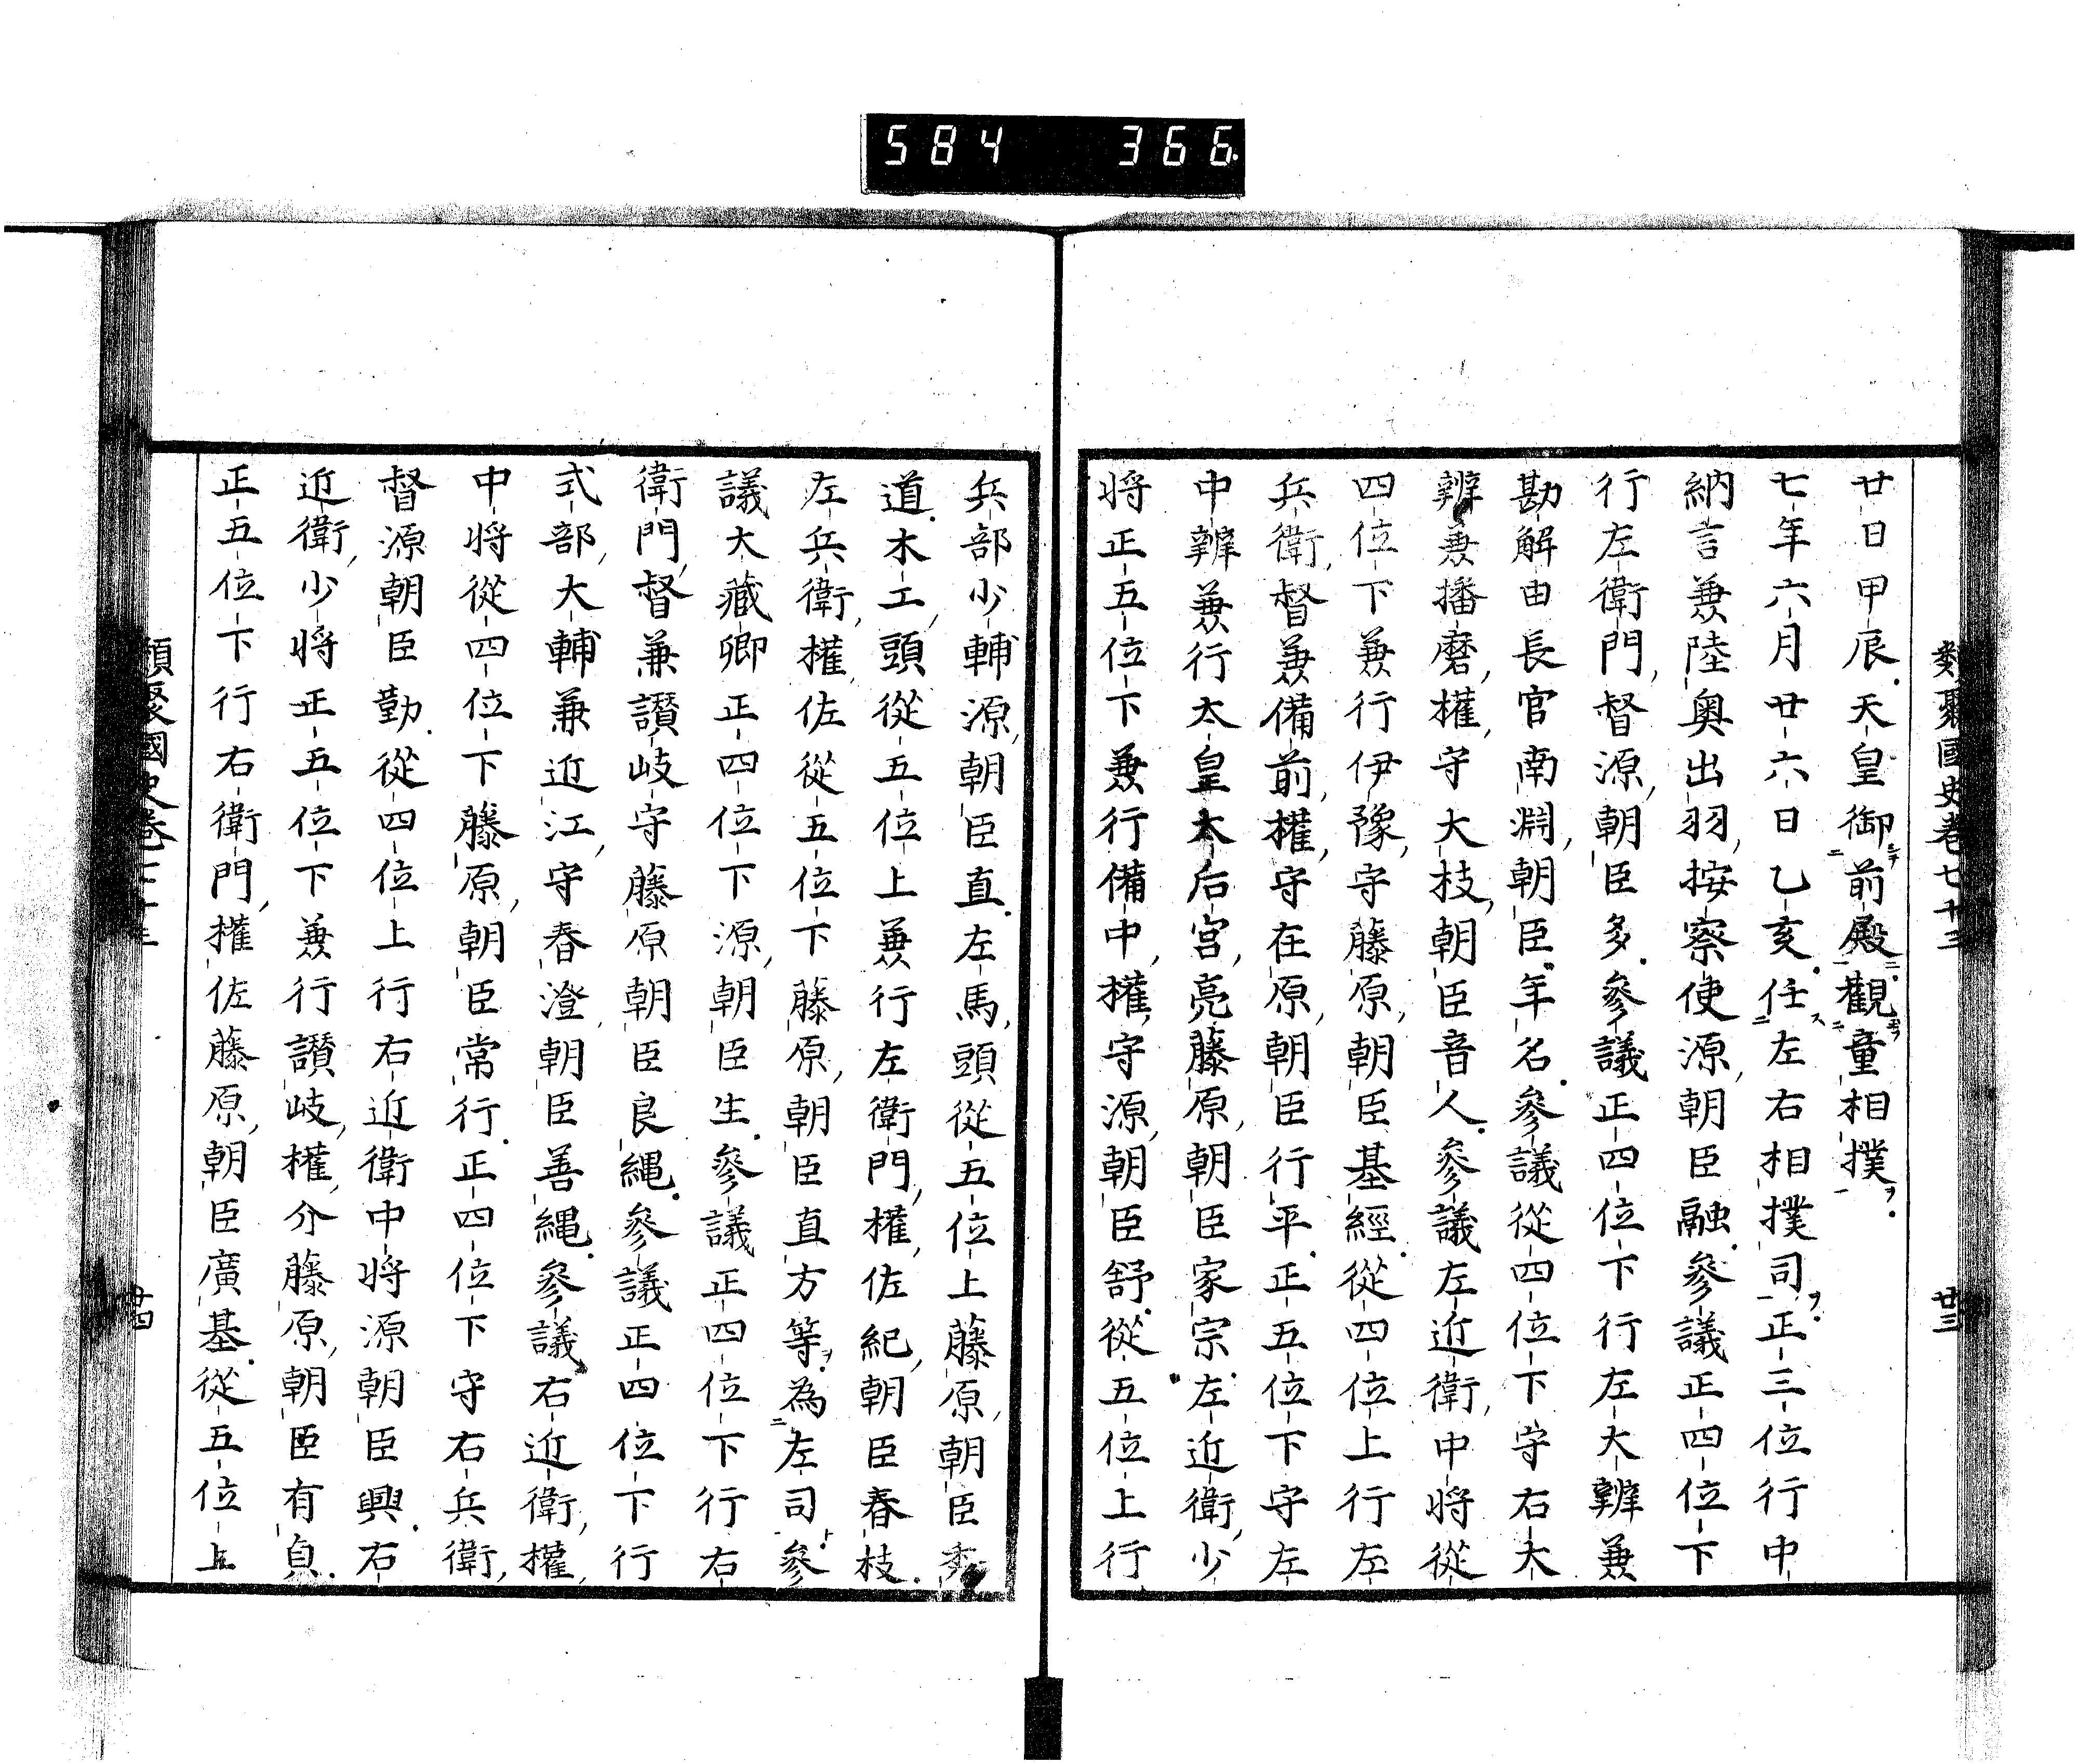 584 366
類聚國史卷七十三 廿三
廿日甲辰天皇御前殿觀童相撲
七年六月廿六日乙亥任左右相撲司正三位行中
納言兼陸奥出羽按察使源朝臣融參議正四位下
行左衛門督源朝臣多參議正四位下行左大辨兼
勘解由長官南淵朝臣年名參議從四位下守右大
辨兼播磨權守大枝朝臣音人參議左近衛中將從
四位下兼行伊豫守藤原朝臣基經從四位上行左
兵衛督兼備前權守在原朝臣行平正五位下守左
中辨兼行太皇太后宮亮藤原朝臣家宗左近衛少
將正五位下兼行備中權守源朝臣舒從五位上行
兵部少輔源朝臣直左馬頭從五位上藤原朝臣秀
道木工頭從五位上兼行左衛門權佐紀朝臣春枝
左兵衛權佐從五位下藤原朝臣直方等為左司參
議大藏卿正四位下源朝臣生參議正四位下行右
衛門督兼讚岐守藤原朝臣良縄參議正四位下行
式部大輔兼近江守春澄朝臣善縄參議右近衛權
中將從四位下藤原朝臣常行正四位下守右兵衛
督源朝臣勤從四位上行右近衛中將源朝臣興右
近衛少將正五位下兼行讚岐權介藤原朝臣有貞
正五位下行右衛門權佐藤原朝臣廣基從五位上
類聚國史卷七十三 廿四